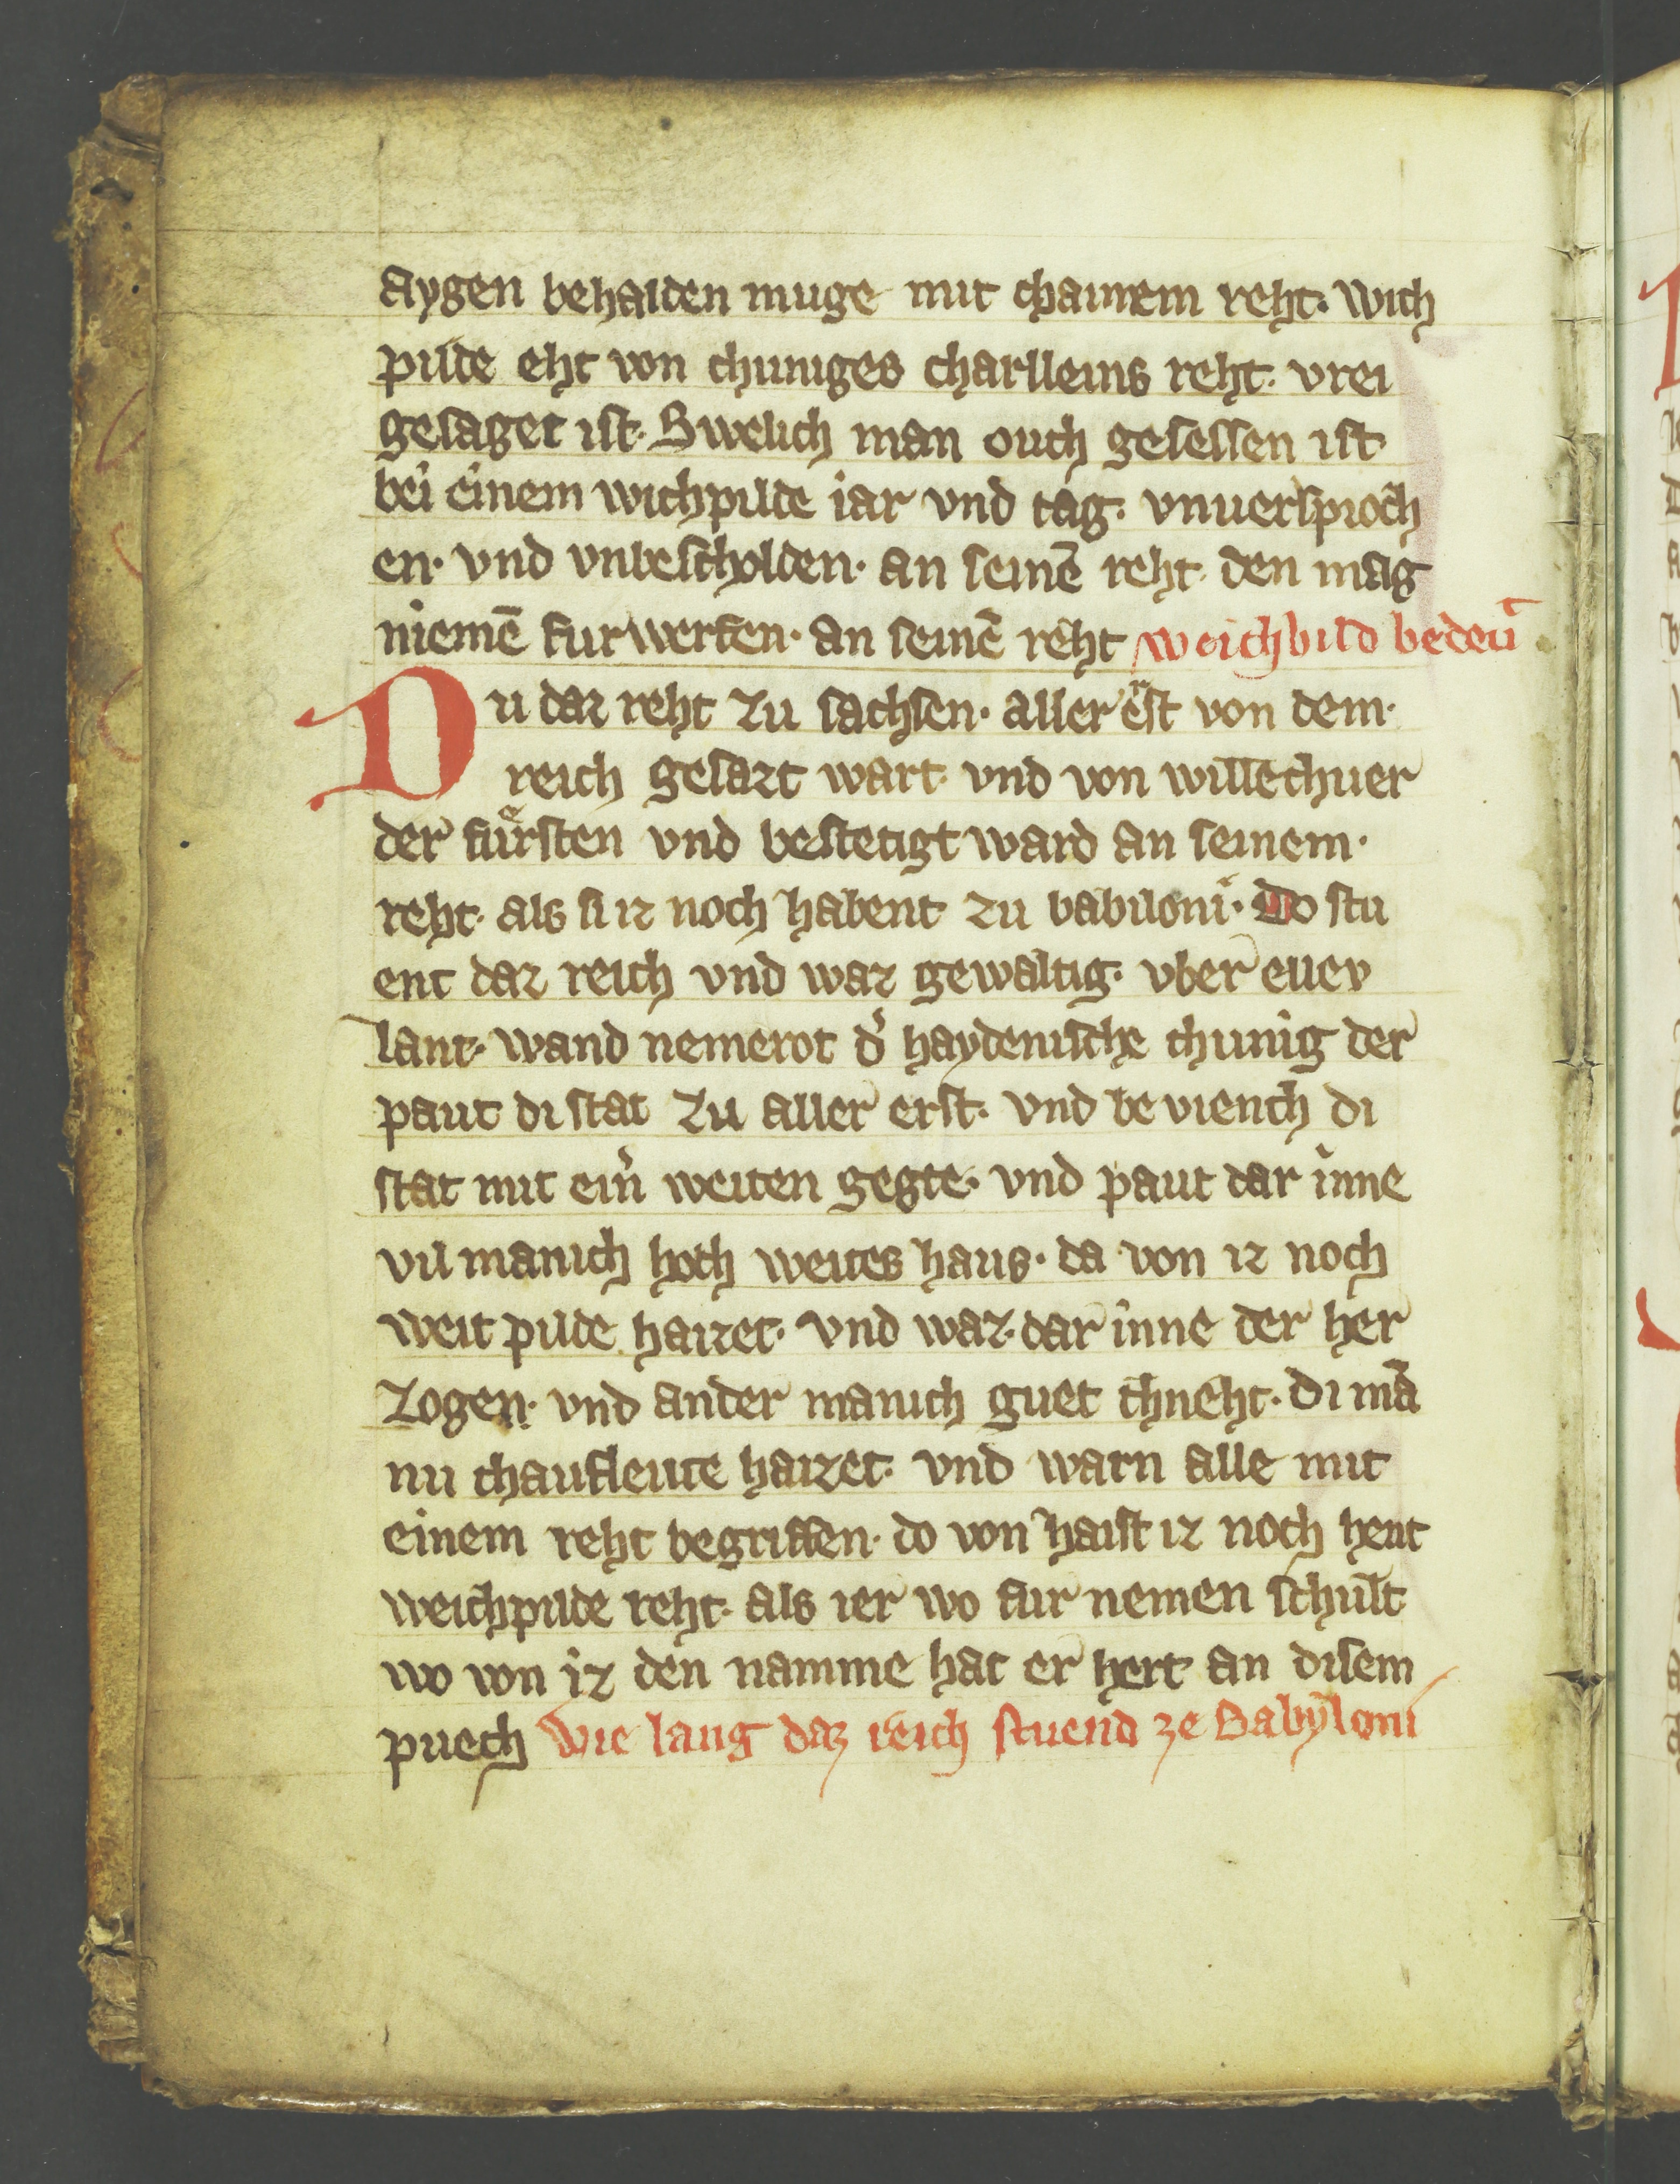 aygen behalden muge mit chainem reht. wich
pilde eht von chuniges charlleins reht. vrei
gesaget ist. Swelich man ouch gesessen ist
bei einem wichpilde iar vnd tag. vnuersproch
en. vnd vnbescholden. an seinē reht. den mag
niemē furwerfen. an seinē reht weichbild bedeūt
Du daz reht zu sachsen. aller erst von dem.
reich gesazt wart. vnd von willechuer
der fuͤrsten vnd bestetigt ward an seinem.
reht. als si iz noch habent zu babiloni. Do stu
ent daz reich vnd waz gewaltig. vber euev
lant. wand nemerot d' haydenische chunig der
paut di stat zu aller erst. vnd be viench di
stat mit ein̄ weiten gegte. vnd paut dar inne
vil manich hoch weites haus. da von iz noch
weit pilde haizet. vnd waz. dar inne der her
zogen. vnd ander manich guet chneht. Di mā
nu chaufleute haizet. vnd warn alle mit
einem reht begriffen. do von haist iz noch heut
weichpilde reht. als ier wo fur nemen schult
wo von iz den namme hat er hert an disem
puech Wie lang daz reich stuend ze Babyloni